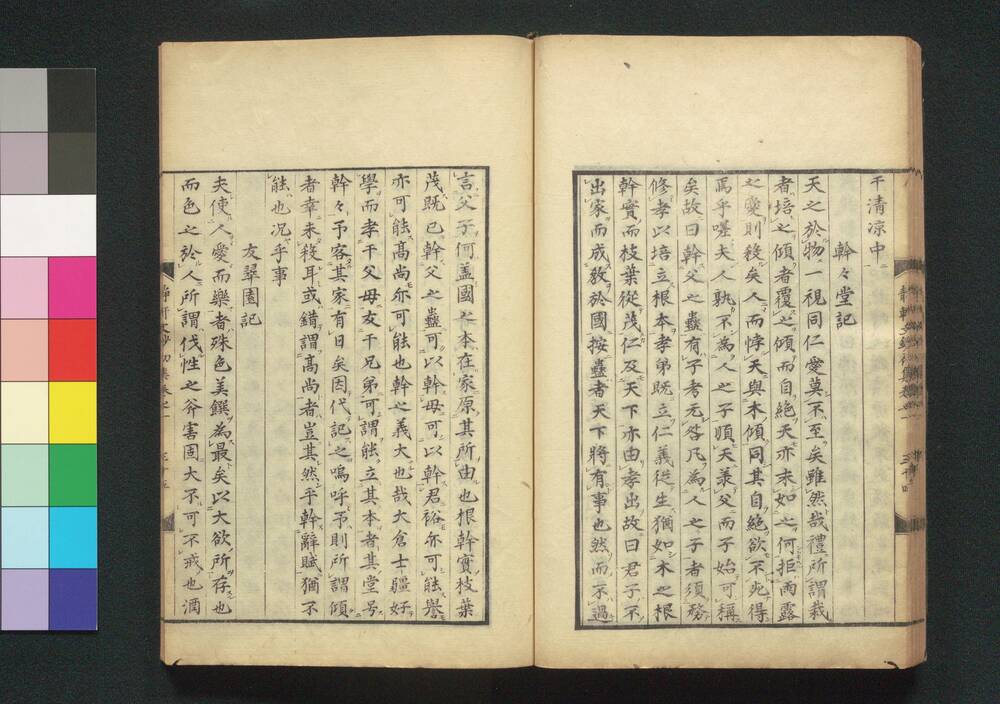 于清凉中
幹々堂記
天之於物一視同仁愛莫不至矣雖然哉禮所謂栽
者培之傾者覆之傾而自絕天亦未如之何拒雨露
之變則殺矣人而悖天與木傾同其自絕欲不死得
焉乎嗟夫人孰不為人之子順天義父而子始可稱
矣故曰幹父之蠱有子考无咎凡為人之子者須務
修孝以培立根本孝弟既立仁義從生猶如木之根
幹實而枝葉從茂仁及天下亦由孝出故曰君子不
出家而成教於國按蠱者天下將有事也然而不過
言父子何盖國之本在家原其所由也根幹實枝葉
茂既已幹父之蠱可以幹母可以幹君裕亦可能譽
亦可能高尚亦可能也幹之義大也哉大倉士疆好
學而孝于父母友于兄弟可謂能立其本者其堂号
幹々予客其家有日矣因代記之嗚呼予則所謂傾
者幸未殺耳或錯謂高尚者豈其然乎幹辭賦猶不
能也况乎事
友翠園記
夫使人愛而樂者殊色美饌為最矣以大欲所存也
而色之於人所謂伐性之斧害固大不可不戒也酒